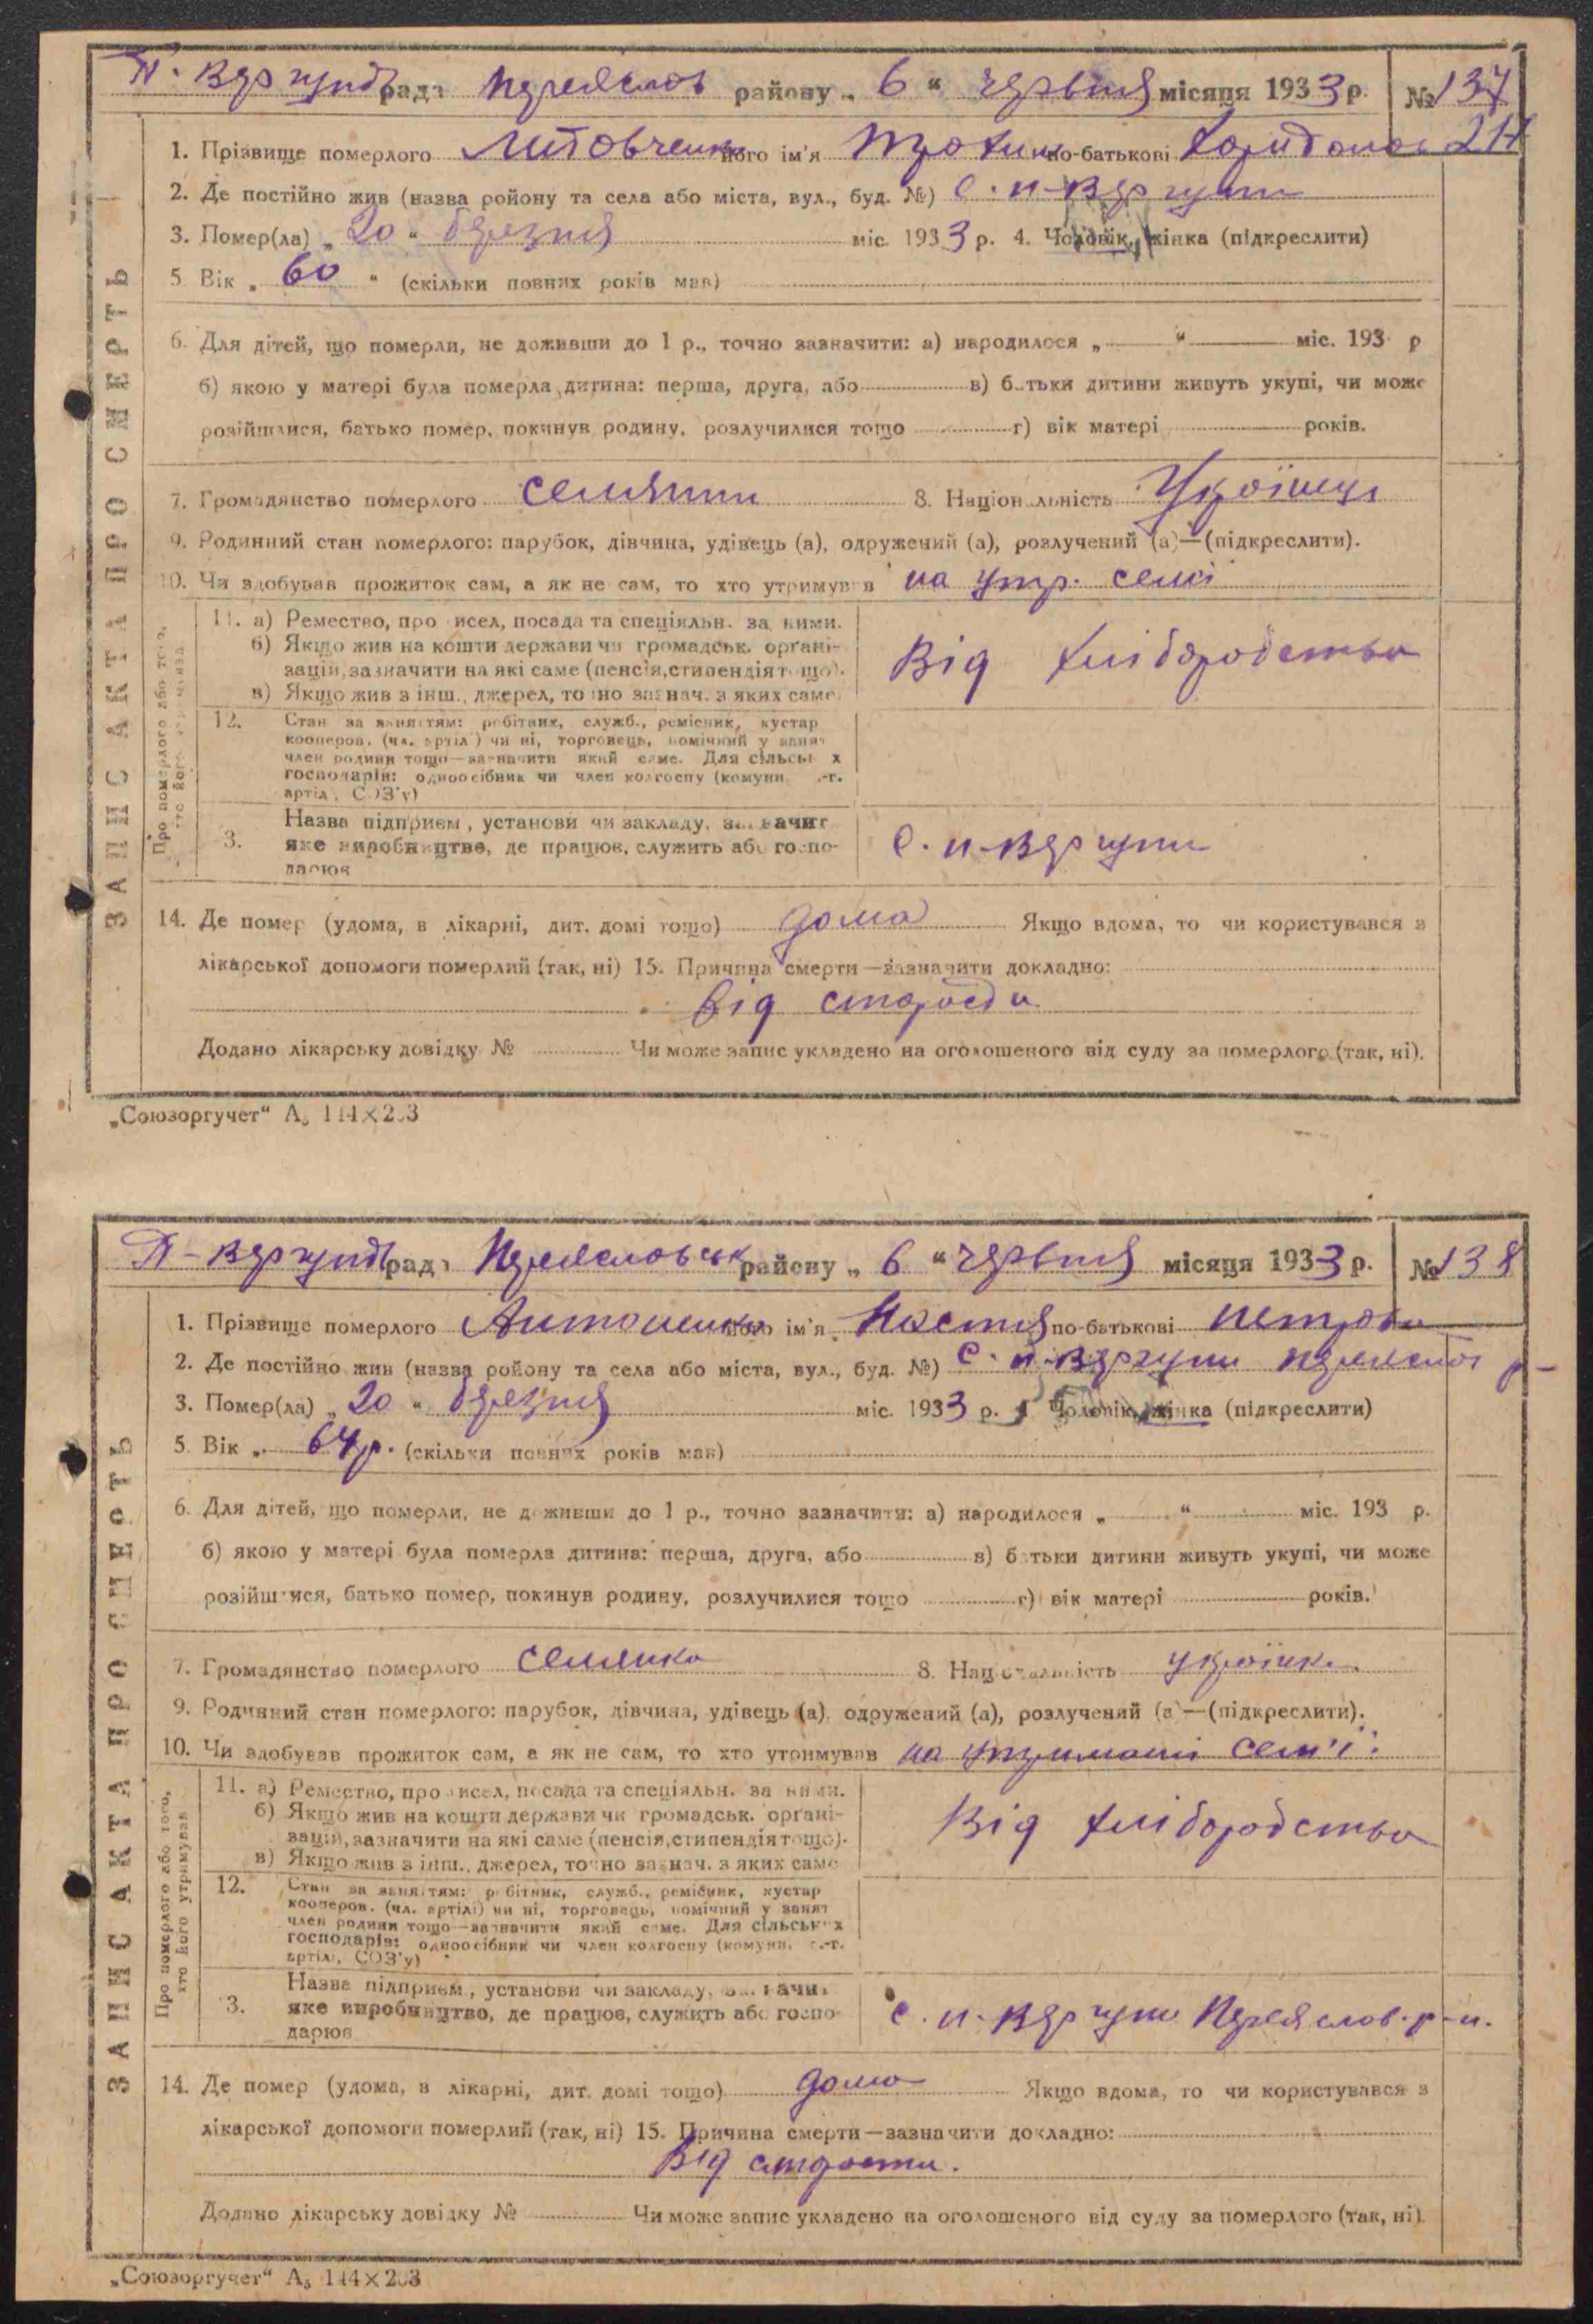 П-Вергунів рада Переяслов району „ 6 “ червня місяця 1933 р. № 137
1. Прізвище померлого Литовченко його ім'я Трохим по-батькові
2. Де постійно жив (назва ройону та села або міста, вул., буд. №) с. п-Вергуни
3. Помер(ла) „ 20 “ березня міс. 1933 р. 4. Чоловік, жінка (підкреслити)
5. Вік „ 60 “ (скільки повних років мав)
6. Для дітей, що померли, не доживши до 1 р., точно зазначити: а) народилося „ “ міс. 193 р
б) якою у матері була померла дитина: перша, друга, або в) батьки дитини живуть укупі, чи може
розійшлися, батько помер, покинув родину, розлучилися тощо г) вік матері років.
7. Громадянство померлого селянин 8. Національність Українец
9. Родинний стан померлого: парубок, дівчина, удівець (а), одружений (а), розлучений (а)—(підкреслити).
10. Чи здобував прожиток сам, а як не сам, то хто утримував на утр. семі
ЗАПИС АКТА ПРО СМЕРТЬ
Про померлого або того, хто його утримував
11. а) Ремество, промисел, посада та спеціяльн. за ними.
б) Якщо жив на кошти держави чи громадськ. орґані-
зацій, зазначити на які саме (пенсія, стипендія тощо).
в) Якщо жив з інш., джерел, точно зазнач. з яких саме
Від хліборобства
12. Стан за заняттям: робітник, служб., ремісник, кустар
кооперов. (чл. артілі) чи ні, торговець, помічний у занят
член родини тощо—зазначити який саме. Для сільських
господарів: одноосібник чи член колгоспу (комуни, с.-г.
артіл., СОЗ'у)
3. Назва підприєм., установи чи закладу, зазначит
яке виробництво, де працює, служить або госпо-
дарює
с. п-Вергуни
14. Де помер (удома, в лікарні, дит. домі тощо) дома Якщо вдома, то чи користувався з
лікарської допомоги померлий (так, ні) 15. Причина смерти—зазначити докладно:
Від старости
Додано лікарську довідку № Чи може запис укладено на оголошеного від суду за померлого (так, ні).
„Союзоргучет“ А₅ 144×203
П-Вергунів рада Переясловськ району „ 6 “ червня місяця 1933 р. № 138
1. Прізвище померлого Антоненко його ім'я Настя по-батькові Петрова
2. Де постійно жив (назва ройону та села або міста, вул., буд. №) с. п-Вергуни Переяслов р-
3. Помер(ла) „ 20 “ березня міс. 1933 р. 4 Чоловік, жінка (підкреслити)
5. Вік „ 64 р. (скільки повних років мав)
6. Для дітей, що померли, не доживши до 1 р., точно зазначити: а) народилося „ “ міс. 193 р.
б) якою у матері була померла дитина: перша, друга, або в) батьки дитини живуть укупі, чи може
розійшлися, батько помер, покинув родину, розлучилися тощо г) вік матері років.
7. Громадянство померлого селянка 8. Національність україн.
9. Родинний стан померлого: парубок, дівчина, удівець (а), одружений (а), розлучений (а)—(підкреслити).
10. Чи здобував прожиток сам, а як не сам, то хто утримував на утриманні сем'ї.
ЗАПИС АКТА ПРО СМЕРТЬ
Про померлого або того, хто його утримував
11. а) Ремество, промисел, посада та спеціяльн. за ними.
б) Якщо жив на кошти держави чи громадськ. орґані-
зацій, зазначити на які саме (пенсія, стипендія тощо).
в) Якщо жив з інш., джерел, точно зазнач. з яких саме
Від хліборобства
12. Стан за заняттям: робітник, служб., ремісник, кустар
кооперов. (чл. артілі) чи ні, торговець, помічний у занят
член родини тощо—зазначити який саме. Для сільських
господарів: одноосібник чи член колгоспу (комуни, с.-г.
артілі, СОЗ'у)
3. Назва підприєм., установи чи закладу, зазначи
яке виробництво, де працює, служить або госпо-
дарює
с. п-Вергуни Переяслов. р-н.
14. Де помер (удома, в лікарні, дит. домі тощо) дома Якщо вдома, то чи користувався з
лікарської допомоги померлий (так, ні) 15. Причина смерти—зазначити докладно:
Від старости.
Додано лікарську довідку № Чи може запис укладено на оголошеного від суду за померлого (так, ні).
„Союзоргучет“ А₅ 144×203